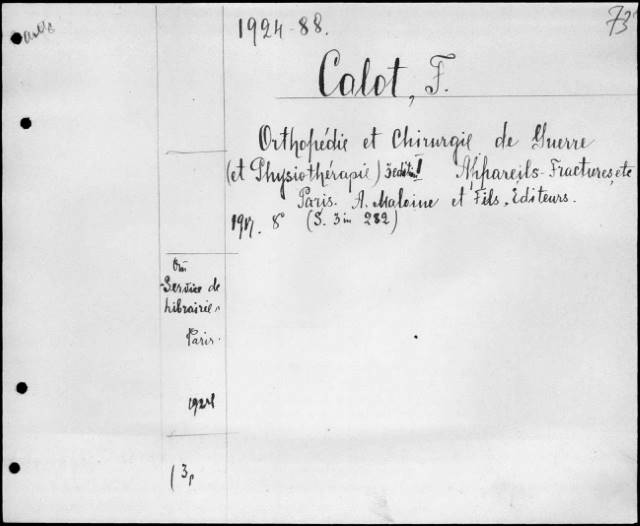 1924-88.
73
Calot, F.
Orthopédie et Chirurgie de Guerre
(et Physiothérapie) 3 edit. I Appareils-Fractures, etc
Paris. A. Maloine et Fils, Éditeurs.
1917. 8° (S. 3 in 282)
Service de
Librairie
Paris.
1924
(3,